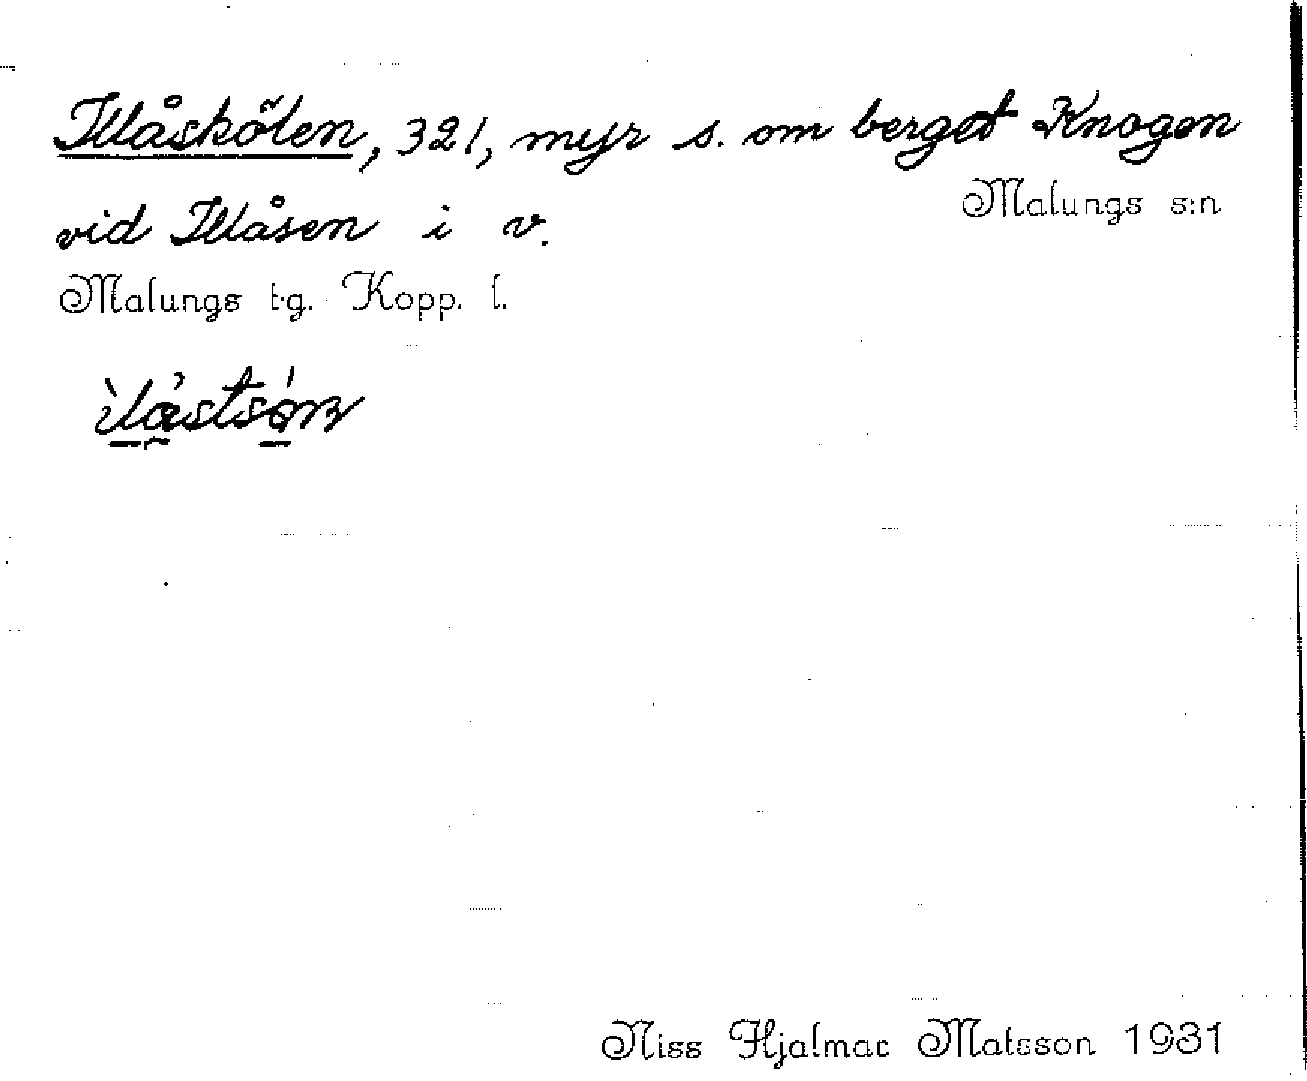 Illåskölen, 321, myr s. om berget Knogen
vid Illåsen i v. Malungs s:n
Malungs t-g. Kopp. l.
Niss Hjalmar Matsson 1931